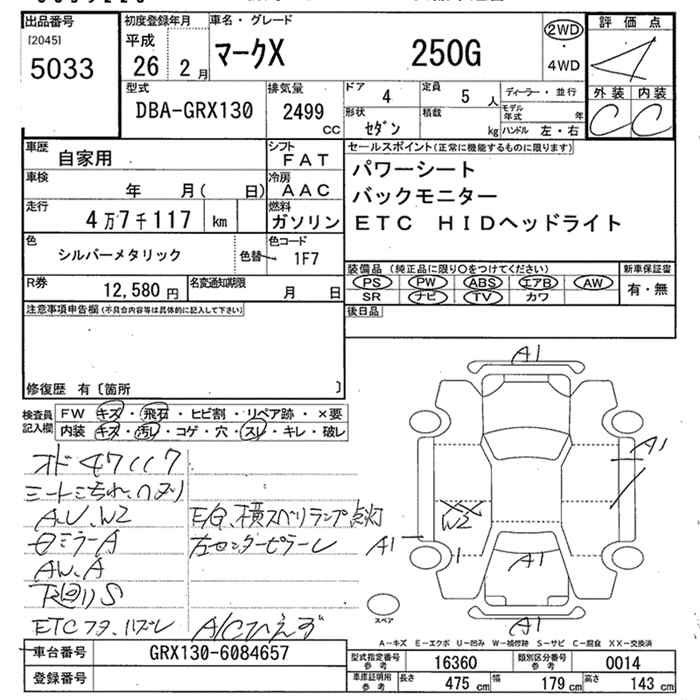 出品番号 初度登録年月 車名・グレード 評価点
[2045] 平成 2WD
5033 26 2月 マークX 250G 4WD 4
型式 排気量 ドア 4 定員 5 人 ディーラー・並行 外装 内装
DBA-GRX130 2499 cc 形状 セダン 積載 kg モデル年式 年 C C
ハンドル 左・右
車歴 自家用 シフト FAT セールスポイント(正常に機能するものに限ります)
車検 年 月( 日) 冷房 AAC パワーシート
走行 4万7千117 km 燃料 ガソリン バックモニター
ETC HIDヘッドライト
色 シルバーメタリック 色替 色コード 1F7
装備品 (純正品に限り○をつけてください) 新車保証書
R券 12,580円 名変通知期限 月 日 PS PW ABS エアB AW 有・無
SR ナビ TV カワ
注意事項申告欄(不具合内容等は具体的に記入して下さい) 後日品
修復歴 有〔箇所 〕
検査員記入欄 FW キズ・飛石・ヒビ割・リペア跡・×要
内装 キズ・汚レ・コゲ・穴・スレ・キレ・破レ
A1
A1
オド 47117
A.U、W2 E/G、横スベリランプ点灯
XX
W2
ミラーA 左センターピラーレ
A1
A1
AW、A
下回リS
スペア
ETCフタ、ハズレ A/Cひえず
A1
A-キズ E-エクボ U-凹み W-補修跡 S-サビ C-腐食 XX-交換済
車台番号 GRX130-6084657 型式指定番号 参考 16360 類別区分番号 参考 0014
登録番号 車庫証明用 参考 長さ 475 cm 幅 179 cm 高さ 143 cm